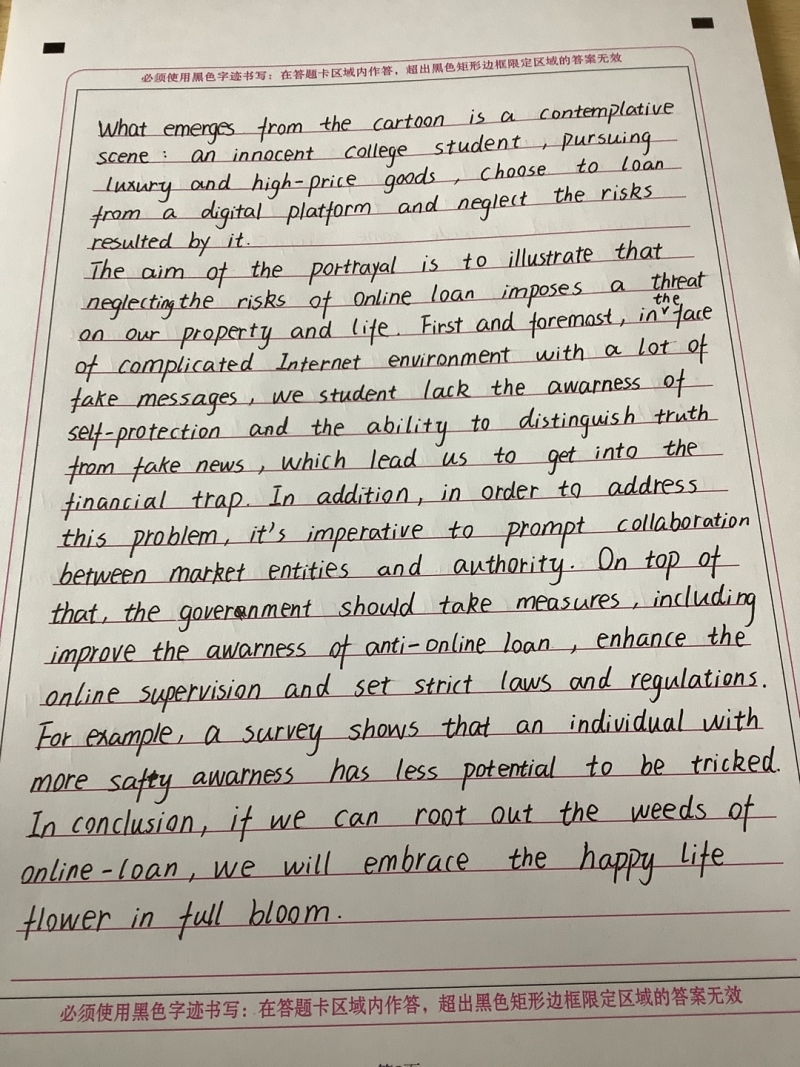 必须使用黑色字迹书写：在答题卡区域内作答，超出黑色矩形边框限定区域的答案无效
What emerges from the cartoon is a contemplative
scene: an innocent college student, pursuing
luxury and high-price goods, choose to loan
from a digital platform and neglect the risks
resulted by it.
The aim of the portrayal is to illustrate that
neglecting the risks of online loan imposes a threat
on our property and life. First and foremost, in the face
of complicated Internet environment with a lot of
fake messages, we student lack the awarness of
self-protection and the ability to distinguish truth
from fake news, which lead us to get into the
financial trap. In addition, in order to address
this problem, it's imperative to prompt collaboration
between market entities and authority. On top of
that, the government should take measures, including
improve the awarness of anti-online loan, enhance the
online supervision and set strict laws and regulations.
For example, a survey shows that an individual with
more safty awarness has less potential to be tricked.
In conclusion, if we can root out the weeds of
online-loan, we will embrace the happy life
flower in full bloom.
必须使用黑色字迹书写：在答题卡区域内作答，超出黑色矩形边框限定区域的答案无效